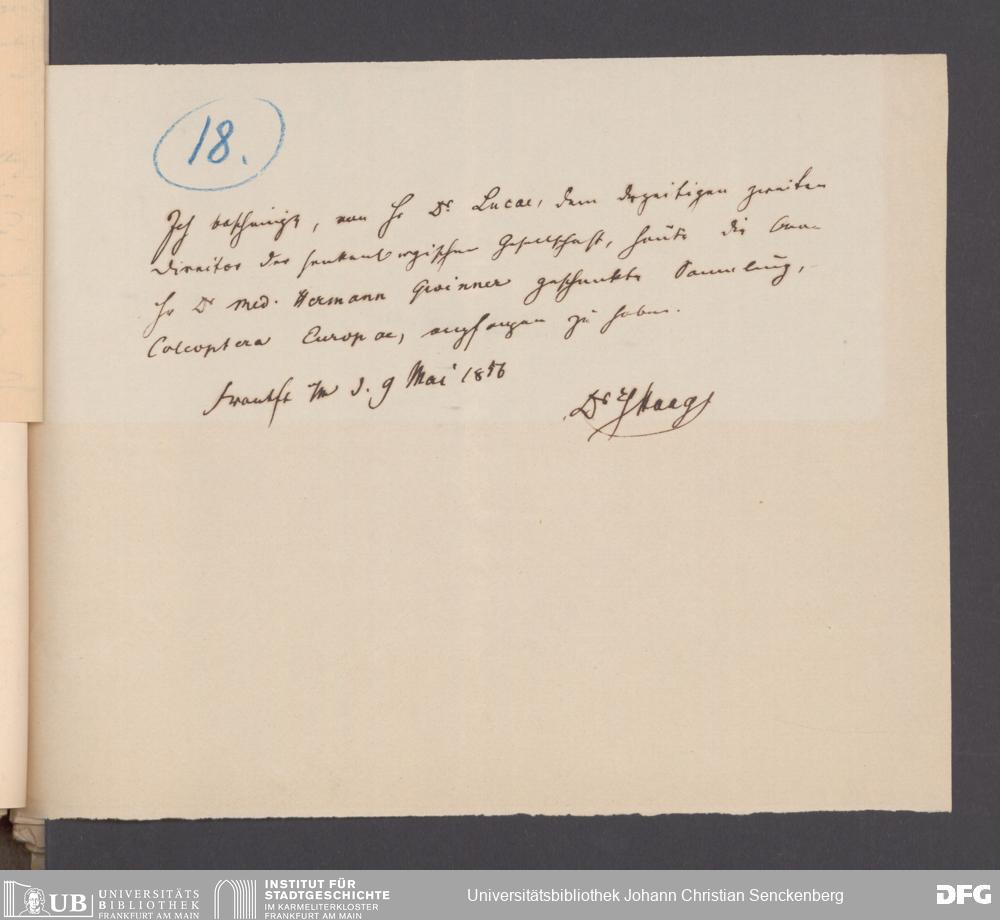 18.
Ich bescheinige, von Hr Dr. Lucae, dem derzeitigen zweiten
Director der senkenbergischen Gesellschaft, heute die von
Hr Dr med. Hermann Gwinner geschenkte Sammlung,
Coleoptera Europae, empfangen zu haben.
Frankft d. 9 Mai 1856
Dr Haag
UB UNIVERSITÄTS
BIBLIOTHEK
FRANKFURT AM MAIN
INSTITUT FÜR
STADTGESCHICHTE
IM KARMELITERKLOSTER
FRANKFURT AM MAIN
Universitätsbibliothek Johann Christian Senckenberg
DFG